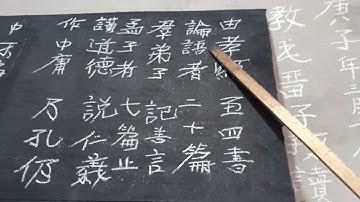 庚子年三
教
由孝經 至四書
論語者 二十篇
羣弟子 記善言
孟子者 七篇止
講道德 說仁義
作中庸 乃孔伋
中不